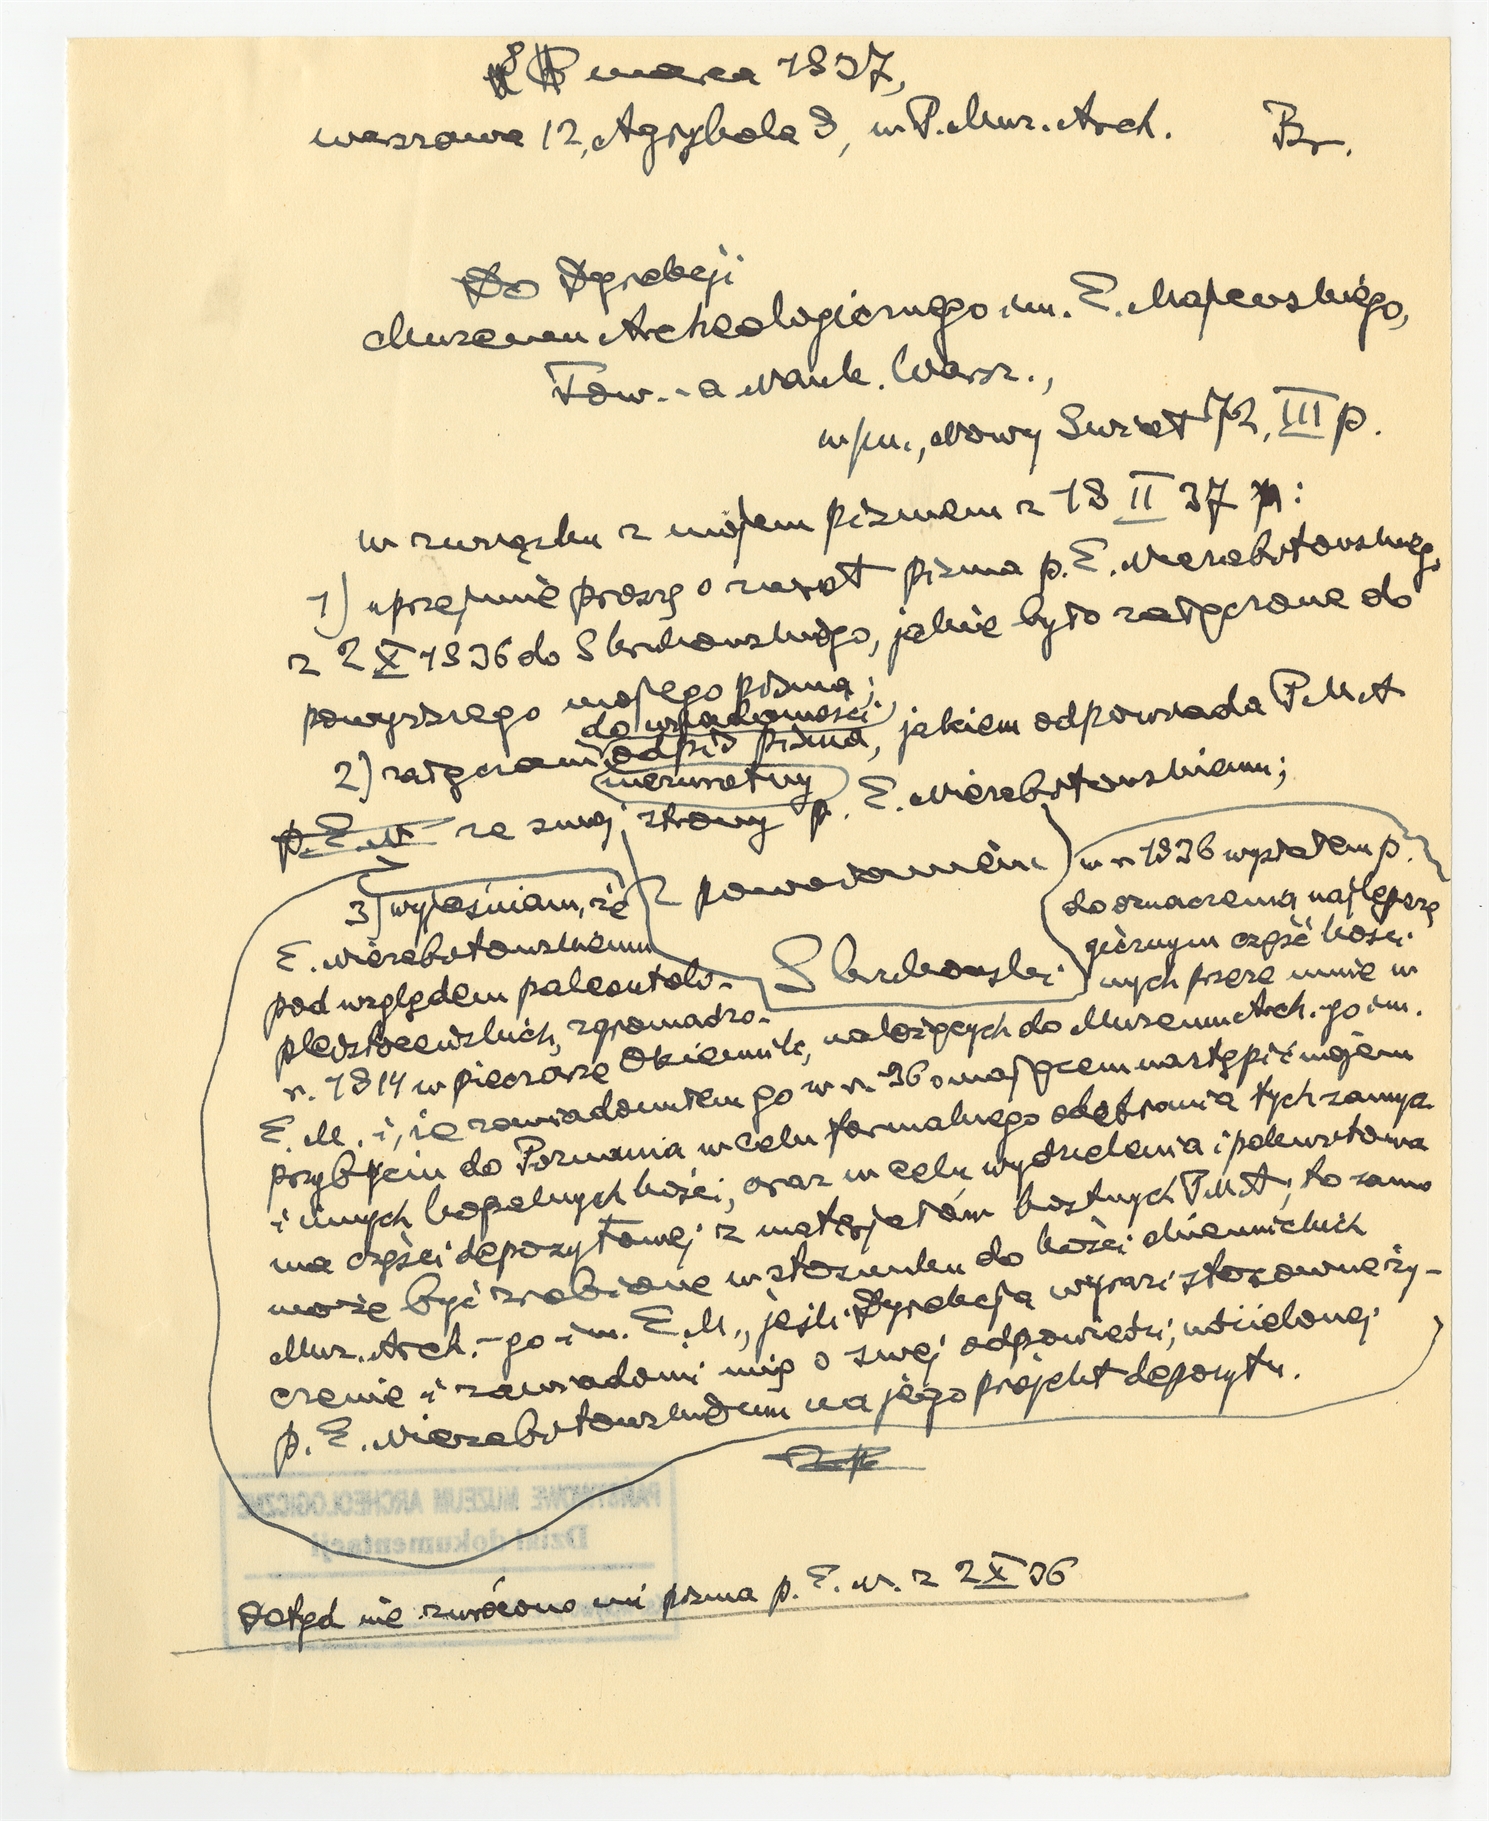 8 marca 1937,
Warszawa 12, Agrykola 9, w P. Muz. Arch. Br.
Do Dyrekcji
Muzeum Archeologicznego im. E. Majewskiego,
Tow.-a Nauk. Warsz.,
w/m., Nowy Świat 72, III p.
W związku z mojem pismem z 19 II 37:
1) uprzejmie proszę o zwrot pisma p. E. Niezabitowskiego,
z 2 X 1936 do S Krukowskiego, jakie było załączone do
powyższego mojego pisma;
do wiadomości
2) załączam odpis pisma, jakiem odpowiada PMA
niezwrotny
p. E. N. ze swej strony p. E. Niezabitowskiemu;
z poważaniem
S Krukowski
3) wyjaśniam, że w r. 1936 wysłałem p.
E. Niezabitowskiemu do oznaczenia najlepszą
pod względem paleontologicznym część kości
plejstoceńskich, zgromadzonych przeze mnie w
r. 1914 w pieczarze Okiennik, należących do Muzeum Arch.-go im.
E. M. i, że zawiadomiłem go w r. 36 o mającem nastąpić mojem
przybyciu do Poznania w celu formalnego odebrania tych samych
i innych kopalnych kości, oraz w celu wydzielenia i pokwitowa
nia części depozytowej z materjałów kostnych PMA; to samo
może być zrobione w stosunku do kości okiennickich
Muz. Arch.-go im. E. M., jeśli Dyrekcja wyrazi stosowne ży-
czenie i zawiadomi mię o swej odpowiedzi, udzielonej
p. E. Niezabitowskiemu na jego projekt depozytu.
PAŃSTWOWE MUZEUM ARCHEOLOGICZNE
Dział dokumentacji
Dotąd nie zwrócono mi pisma p. E. N. z 2 X 36